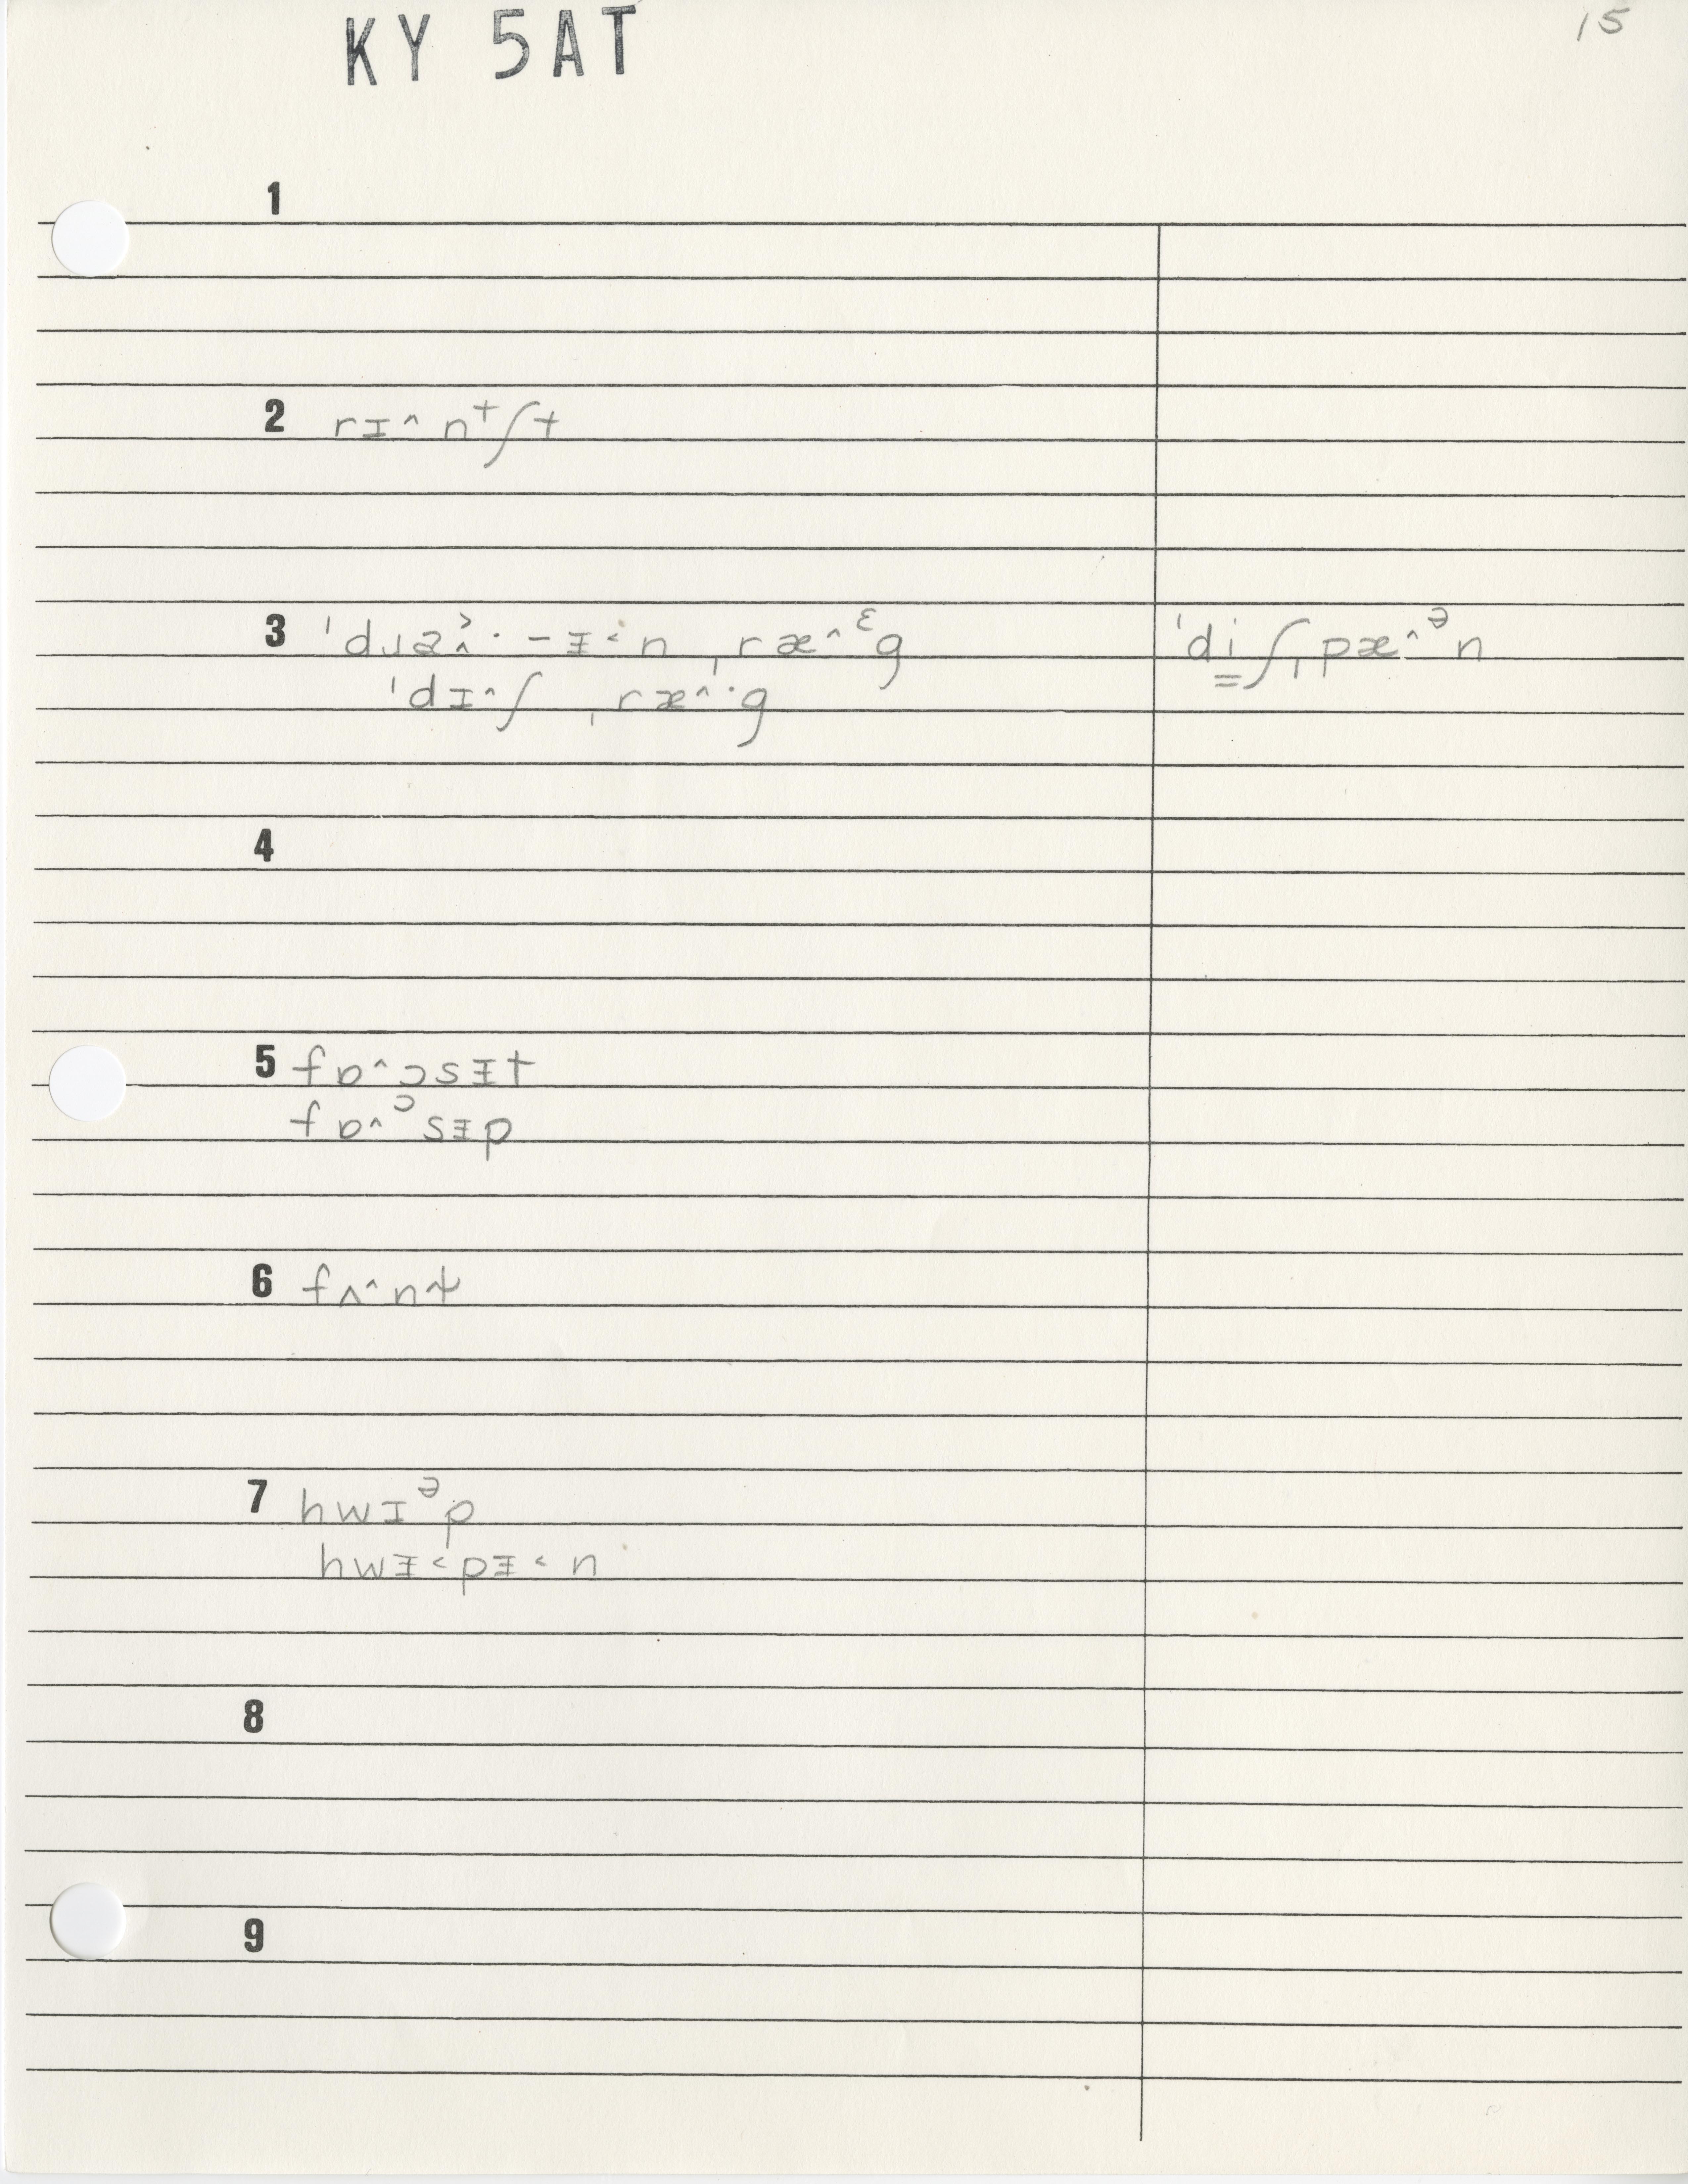 KY 5AT
15
1
2 rɪ^ nᵗʃt
3 ˈdɹaɪ^· – ɪ˂n ˌræ^ᵋg ˈdiʃˌpæ^ᵊn
ˈdɪ^ʃ ˌræ^·g
4
5 fɒ^ɔsɪt
fɒ^ᵓsɪd
6 fʌ^nt
7 hwɪᵊp
hwɪ˂pɪ˂n
8
9